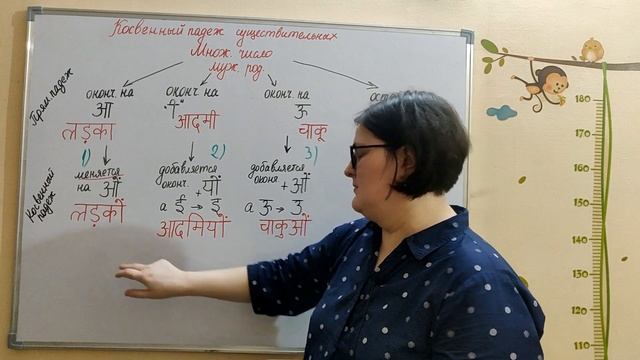 Косвенный падеж существительных
Множ. число
муж. род.
Прям. падеж
оконч. на
आ
लड़का
оконч. на
ी
आदमी
оконч. на
ऊ
चाकू
ост
Косвенный падеж
1)
меняется
на ओं
लड़कों
2)
добавляется
оконч. + यों
а ई → इ
आदमियों
3)
добавляется
оконч + ओं
а ऊ → उ
चाकुओं
180
170
160
150
140
130
120
110